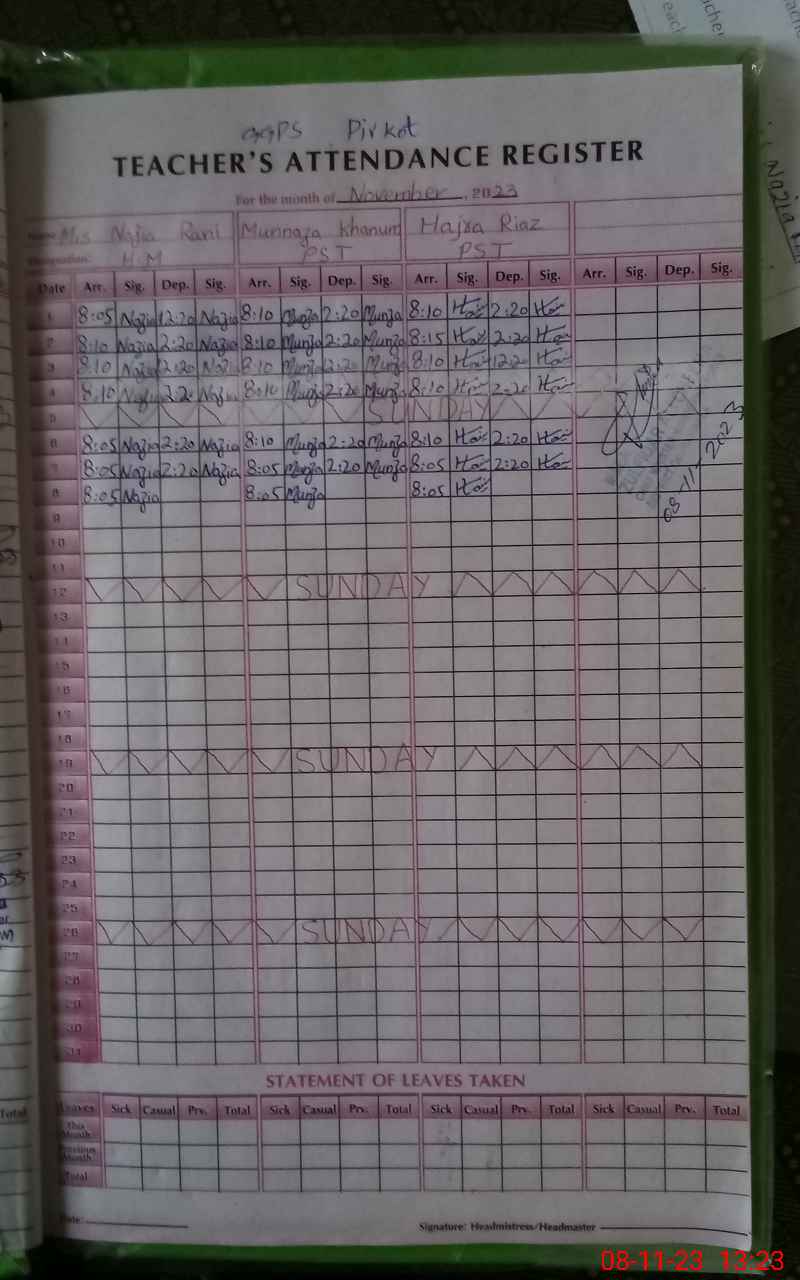 GGPS Pirkot
TEACHER'S ATTENDANCE REGISTER
For the month of November, 2023
Name Mis Najia Rani Munnaza Khanum Hajra Riaz
Designation: H.M PST PST
Date Arr. Sig. Dep. Sig. Arr. Sig. Dep. Sig. Arr. Sig. Dep. Sig. Arr. Sig. Dep. Sig.
1 8:05 Nazia 12:20 Nazia 8:10 Munza 2:20 Munza 8:10 2:20
2 8:10 Nazia 2:20 Nazia 8:10 Munza 2:20 Munza 8:15 2:20
3 8:10 Nazia 2:20 Nazia 8:10 Munza 2:20 Munza 8:10 12:20
4 8:10 Nazia 2:20 Nazia 8:10 Munza 2:20 Munza 8:10 2:20
5 SUNDAY
6 8:05 Nazia 2:20 Nazia 8:10 Munza 2:20 Munza 8:10 2:20
7 8:05 Nazia 2:20 Nazia 8:05 Munza 2:20 Munza 8:05 2:20
8 8:05 Nazia 8:05 Munza 8:05
08-11-2023
9
10
11
12 SUNDAY
13
14
15
16
17
18
19 SUNDAY
20
21
22
23
24
25
26 SUNDAY
27
28
29
30
31
STATEMENT OF LEAVES TAKEN
Leaves Sick Casual Prv. Total Sick Casual Prv. Total Sick Casual Prv. Total Sick Casual Prv. Total
This Month
Previous Month
Total
Date:
Signature: Headmistress/Headmaster
Total
Nazia
08-11-23 13:23